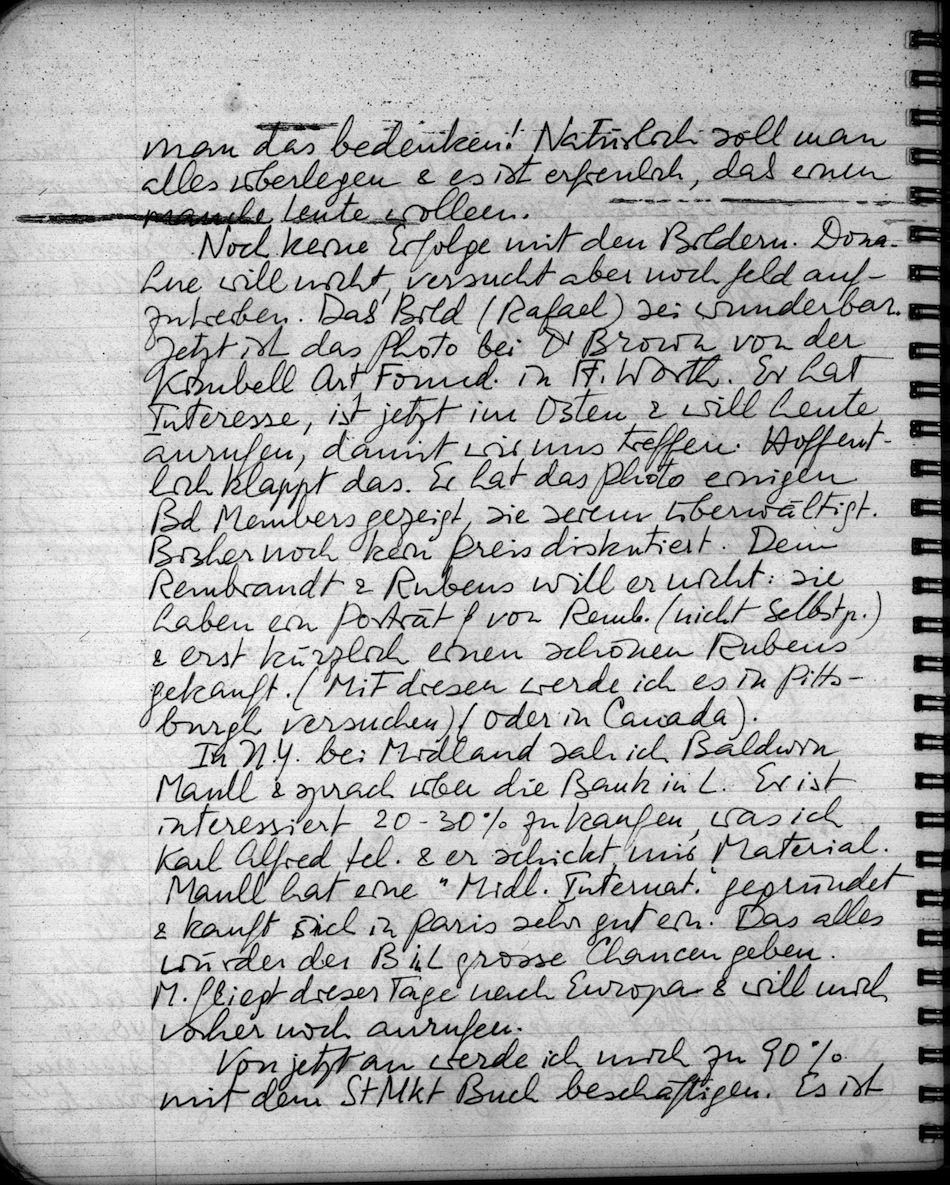 man das bedenken! Natürlich soll man
alles überlegen & es ist erfreulich, daß einen
manche Leute wollen.
Noch keine Erfolge mit den Bildern. Dona-
hue will nicht, versucht aber noch Geld auf-
zutreiben. Das Bild (Rafael) sei wunderbar.
Jetzt ist das Photo bei Dr Brown von der
Kimbell Art Found. in Ft. Worth. Er hat
Interesse, ist jetzt im Osten & will heute
anrufen, damit wir uns treffen. Hoffent-
lich klappt das. Er hat das Photo einigen
Bd Members gezeigt, sie seien überwältigt.
Bisher noch kein Preis diskutiert. Dein
Rembrandt & Rubens will er nicht: sie
haben ein Porträt von Remb. (nicht Selbstp.)
& erst kürzlich einen schönen Rubens
gekauft. (Mit diesen werde ich es in Pitts-
burgh versuchen) (oder in Canada).
In N.Y. bei Midland sah ich Baldwin
Maull & sprach über die Bank in L. Er ist
interessiert 20-30% zu kaufen, was ich
Karl Alfred tel. & er schickt mir Material.
Maull hat eine "Midl. Internat." gegründet
& kauft sich in Paris sehr gut ein. Das alles
würde der BiL grosse Chancen geben.
M. fliegt dieser Tage nach Europa & will mich
vorher noch anrufen.
Von jetzt an werde ich mich zu 90%
mit dem St Mkt Buch beschäftigen. Es ist